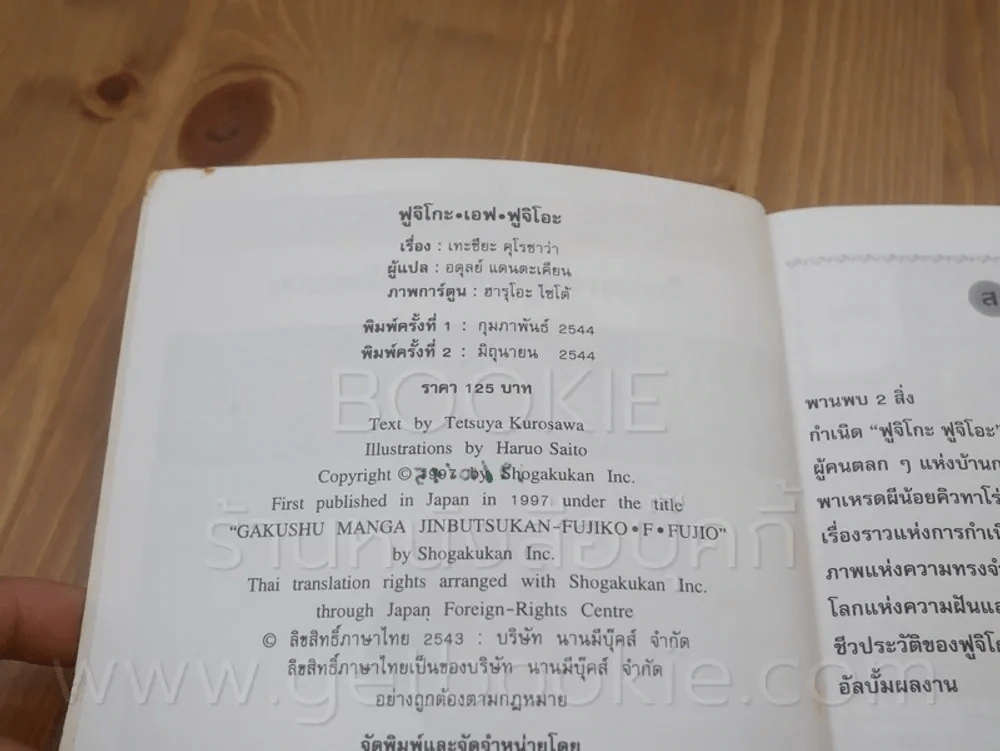 ฟูจิโกะ•เอฟ•ฟูจิโอะ
เรื่อง : เทะซึยะ คุโรซาว่า
ผู้แปล : อดุลย์ แดนตะเคียน
ภาพการ์ตูน : ฮารุโอะ ไซโต้
พิมพ์ครั้งที่ 1 : กุมภาพันธ์ 2544
พิมพ์ครั้งที่ 2 : มิถุนายน 2544
ราคา 125 บาท
BOOKIE
Text by Tetsuya Kurosawa
Illustrations by Haruo Saito
Copyright © 1997 by Shogakukan Inc.
First published in Japan in 1997 under the title
"GAKUSHU MANGA JINBUTSUKAN-FUJIKO•F•FUJIO"
ร้านหนังสือบุคกี้
by Shogakukan Inc.
Thai translation rights arranged with Shogakukan Inc.
through Japan Foreign-Rights Centre
© ลิขสิทธิ์ภาษาไทย 2543 : บริษัท นานมีบุ๊คส์ จำกัด
ลิขสิทธิ์ภาษาไทยเป็นของบริษัท นานมีบุ๊คส์ จำกัด
www.getbookie.com
อย่างถูกต้องตามกฎหมาย
จัดพิมพ์และจัดจำหน่ายโดย
ส
พานพบ 2 สิ่ง
กำเนิด "ฟูจิโกะ ฟูจิโอะ"
ผู้คนตลก ๆ แห่งบ้าน
พาเหรดผีน้อยคิวทาโร่
เรื่องราวแห่งการกำเนิ
ภาพแห่งความทรงจำ
โลกแห่งความฝันและ
ชีวประวัติของฟูจิโก
อัลบั้มผลงาน